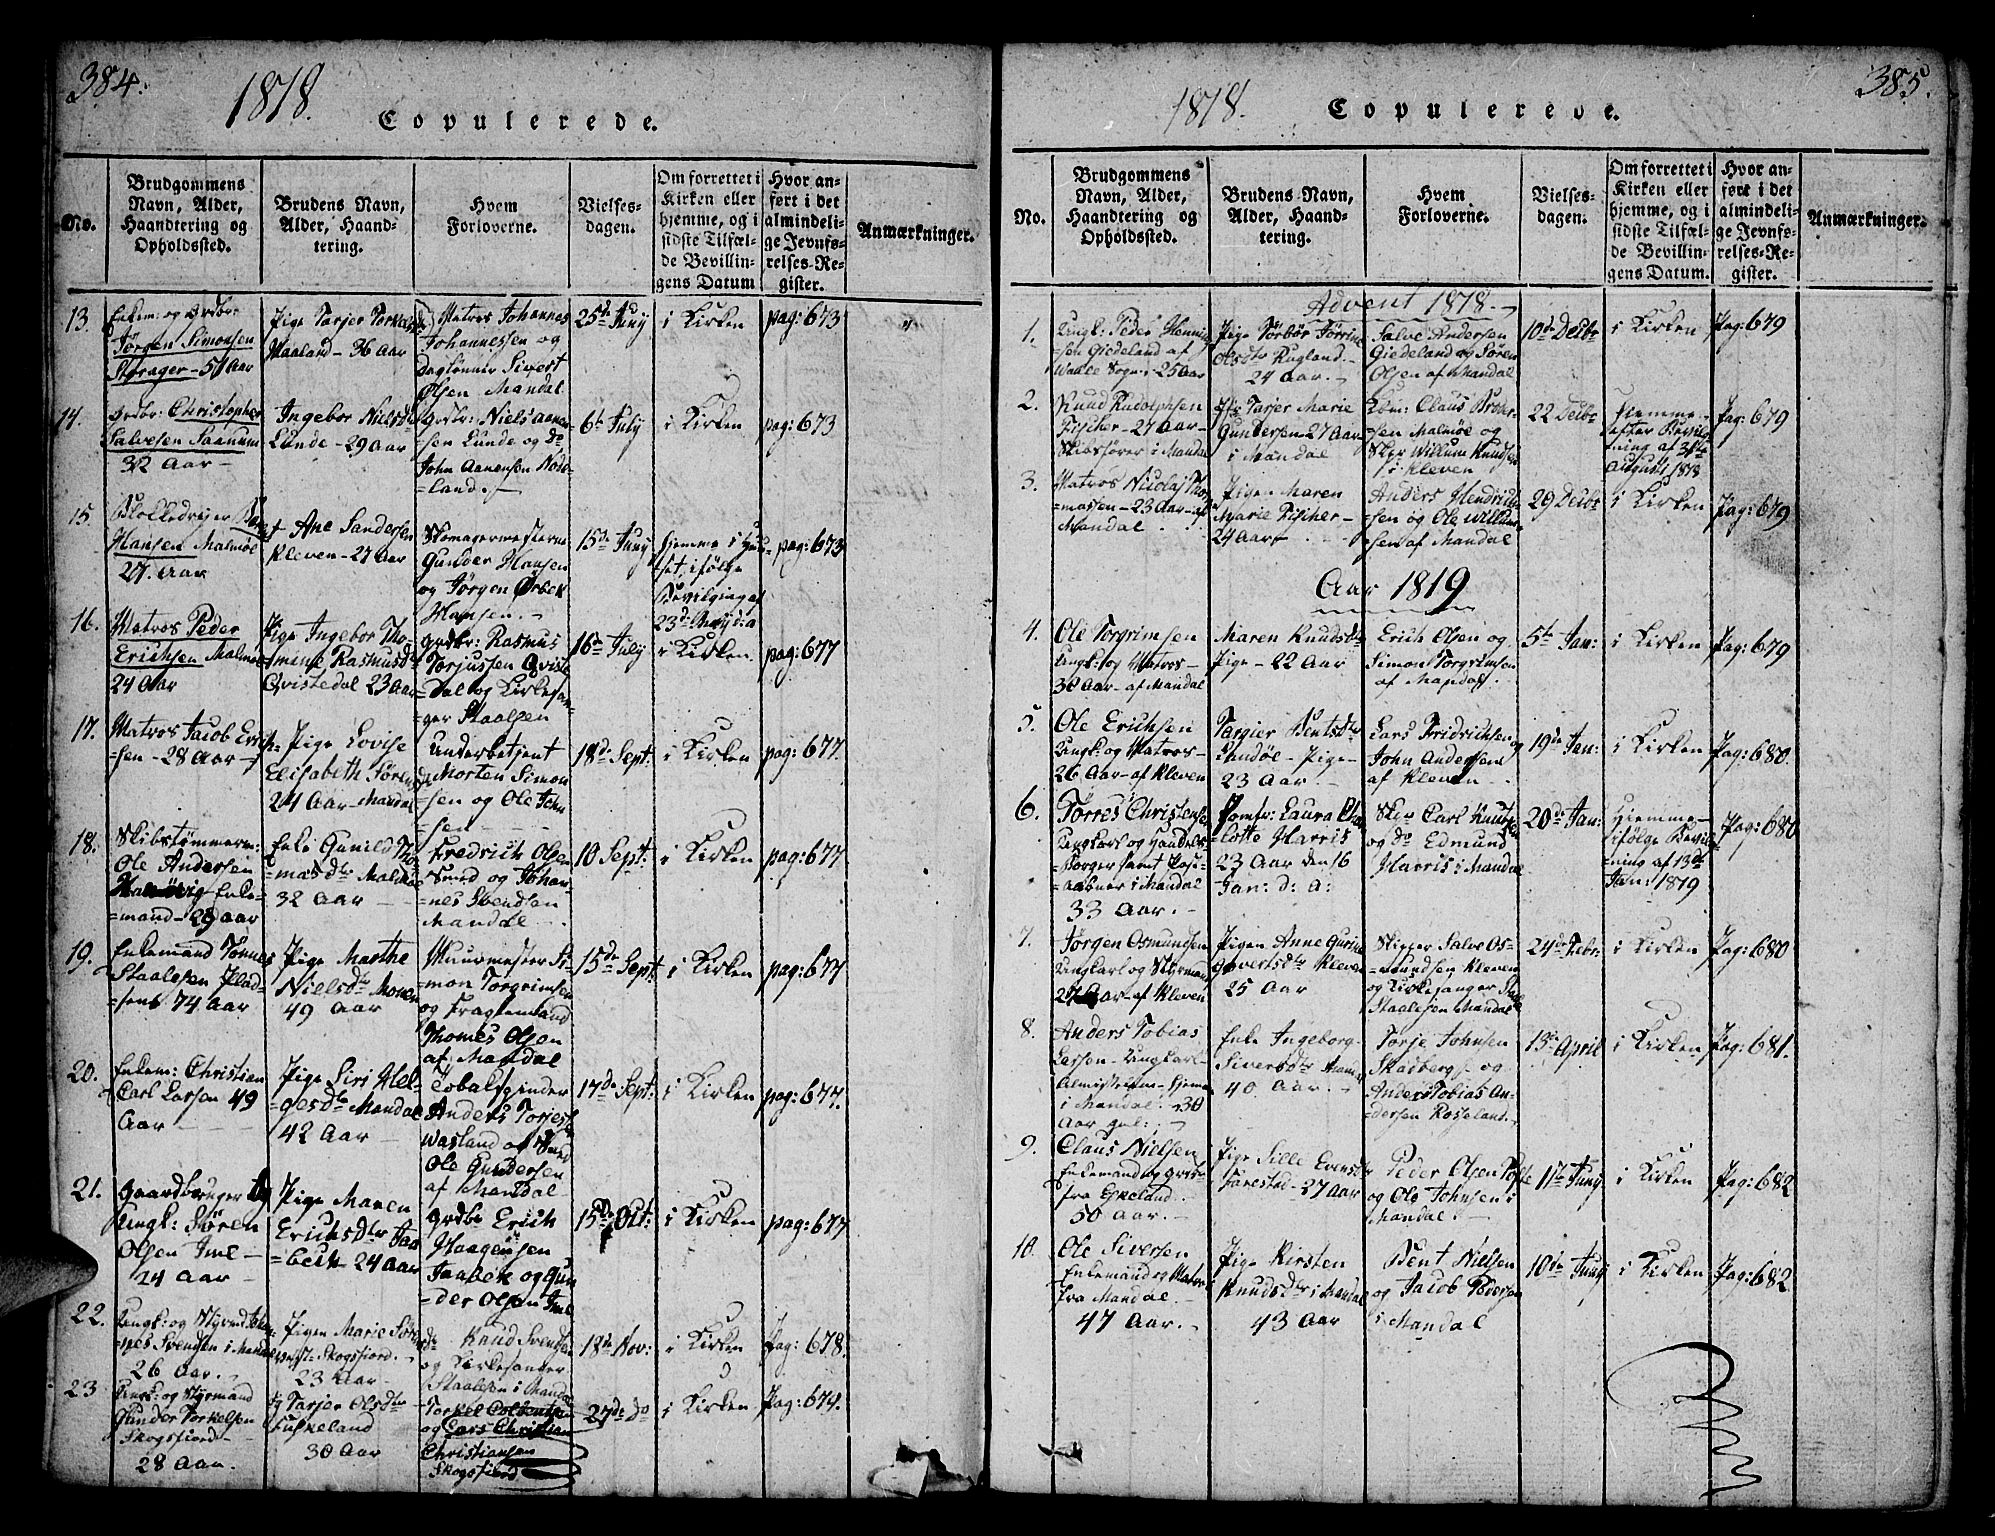 384.
1818.
Copulerede.
No.
Brudgommens
Navn, Alder,
Haandtering og
Opholdssted.
Brudens Navn,
Alder, Haand-
tering.
Hvem
Forloverne.
Vielses-
dagen.
Om forrettet i
Kirken eller
hjemme, og i
sidste Tilfæl-
de Bevillin-
gens Datum
Hvor an-
ført i det
almindeli-
ge Jevnfø-
relses-Re-
gister.
Anmærkninger.
13.
Enkem: og Grdbr:
Jørgen Simonsen
- 51 Aar
Pige Tarjer
Maaland - 36 Aar
Matros Johannes
Johannessen og
Daglønner Sivert
Olsen Mandal
25de Juny
i Kirken
pag: 673
14.
Grdbr: Christopher
Salvesen Saanum
32 Aar
Ingebor Nielsdr
Lunde - 29 Aar
Grdbr: Niels Aanen-
sen Lunde og do
John Aanensen Hode-
land.
6te July
i Kirken
pag: 673
15
Hansen Malmøe
27. Aar
Ane Sandersen
Kleven - 27 Aar
Skomagermesterne
Gunder Hansen
og Jørgen Ørbek
Hansen.
15de Juny
hjemme i Huu-
set, ifølge
Bevilging af
23de
pag: 673
16.
Matros Peder
Erichsen Malmøe
24 Aar
Pige Ingebor Tho-
mine Rasmusdr
Qvistedal 23 Aar
Grdbr: Rasmus
Torjussen Qviste-
dal og Kirkesan-
ger Staalsen
16de July
i Kirken.
pag: 677
17.
Matros Jacob Erich-
sen - 28 Aar
Pige Lovise
Elisabeth Sørensdr
24 Aar - Mandal
Underbetjent
Morten Simon-
sen og Ole John-
sen
18de Sept:
i Kirken
pag: 677.
18.
Skibstømmerm:
Ole Andersen
Enke-
mand - 29 Aar
Enke Gunild Tho-
masdr Malmøe
32 Aar
Fredrich Olsen
Smed og Johan-
nes Svendsen
Mandal
10 Sept:
i Kirken
pag: 677.
19.
Enkemand Tønnes
Staalesen Plad-
sen 74 Aar
Pige Marthe
Nielsdr Monen
49 Aar
Muurmester Si-
mon Torgrimsen
og Fragtemand
Thomes Olsen
af Mandal
15de Sept:
i Kirken
pag: 677
20.
Enkem: Christian
Carl Larsen 49
Aar
Pige Siri Hel-
gesdr Mandal
42 Aar
Tobakspinder
Anders Torjes:
Wasland og Smed
Ole Gundersen
af Mandal
17de Sept:
i Kirken
pag: 677.
21.
Gaardbruger og
Ungk: Søren
Olsen Ime -
24 Aar
Pige Maren
Erichsdtr Jaa-
bek - 24 Aar
Grdbr Erich
Haagensen
Jaabek og Gun-
der Olsen Ime
15de Oct:
i Kirken
pag: 677
22.
Ungk: og Styrmd Johan-
nes Svendsen i Mandal
26 Aar.
Pigen Marie Sørensdr
Skogsfiord.
23 Aar
Knud Svendsen
og Kirkesanger
Staalesen i Mandal
18de Nov:
i Kirken
Pag: 678.
23
Ungk: og Styrmand
Gunder Torkelsen
Skogsfiord -
28 Aar.
Tarjer Olsdtr
30 Aar
Torkel
og Lars Christian
Christiansen
Skogsfiord
27de do
i Kirken
Pag: 679.
385.
1818.
Copulerede.
No.
Brudgommens
Navn, Alder,
Haandtering og
Opholdssted.
Brudens Navn,
Alder, Haand-
tering.
Hvem
Forloverne.
Vielses-
dagen.
Om forrettet i
Kirken eller
hjemme, og i
sidste Tilfæl-
de Bevillin-
gens Datum.
Hvor an-
ført i det
almindeli-
ge Jevnfø-
relses-Re-
gister.
Anmærkninger.
Advent 1818.
1.
Ungk: Peder Hennig-
sen Giedeland af
Walle Sogn - 25 Aar
Pige Torbor Jørrine
Olsdtr Rugland.
24 Aar.
Salve Andersen
Giedeland og Søren
Olsen af Mandal
10de Decbr
i Kirken
Pag: 679
2.
Knud Rudolphsen
Fischer - 27 Aar -
Skibsfører i Mandal
Pige Tarjer Marie
Gundersen 27 Aar
i Mandal
Kbm: Claus Broder-
sen Malmøe og
Skpr Willum Knudsen
i Kleven
22 Decbr
Hjemme -
efter Bevil-
ning af 31te
August 1818
Pag: 679
3.
Matros Nicolaj Tho-
massen - 23 Aar - af
Mandal
Pigen Maren
Marie Fischer -
24 Aar
Anders Hendrich-
sen og Ole Willum-
sen af Mandal
29 Decbr
i Kirken
Pag: 679
Aar 1819
4.
Ole Torgrimsen
Ungk: og Matros -
30 Aar - af Mandal
Maren Knudsdtr
Pige - 22 Aar
Erich Olsen og
Simon Torgrimsen
af Mandal.
5te Jan:
i Kirken
Pag: 679
5.
Ole Erichsen
Ungk: og Matros -
26 Aar - af Kleven
Targier Bentsdtr
Sandøe - Pige -
23 Aar
Lars Fridrichsen og
John Andersen
af Kleven
19de Jan:
i Kirken
Pag: 680.
6.
Torres Christensen
Ungkarl og Handels-
borger samt Post-
aabner i Mandal
33 Aar.
Jomfr: Laura Char-
lotte Harris
23 Aar den 16
Jan: d: A:
Skpr Carl Knudsen
og do Edmund
Harris i Mandal
20de Jan:
Hjemme -
ifølge Bevil-
ning af 13de
Jan: 1819
Pag: 680
7.
Jørgen Osmundsen
Ungkarl og Styrmand
27 Aar - af Kleven
Pigen Anne Gurine
Govertsdtr Kleven
25 Aar
Skipper Salve Os-
mundsen Kleven
og Kirkesanger
Staalesen Mandal
24de Febr:
i Kirken
Pag: 680
8.
Anders Tobias
Larsen - Ungkarl
Almisselem - hjeme
i Mandal. - 30
Aar gml:
Enke Ingeborg
Siversdtr
40 Aar.
Torje Johnsen
Skadberg og
Anders Tobias An-
dersen Roseland.
13de April
i Kirken
Pag: 681.
9.
Claus Nielsen
Enkemand og Grdbr
fra Eskeland.
50 Aar.
Pige Sille Evensdtr
Farestal - 27 Aar
Peder Olsen Tofte
og Ole Johnsen i
Mandal.
11te Juny
i Kirken
Pag: 682
10.
Ole Siversen
Enkemand og Matros
fra Mandal.
47 Aar.
Pige Kirsten
Knudsdtr i Mandal
43 Aar
Bent Nielsen
og Jacob Pedersen
i Mandal
10de Juny
i Kirken
Pag: 682